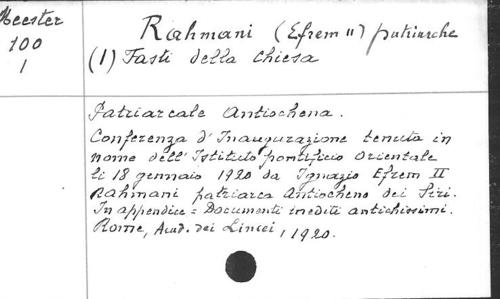 Meester
100
1
Rahmani (Efrem II) patriarche
(1) Fasti della chiesa
Patriarcale Antiochena.
Conferenza d'Inaugurazione tenuta in
nome dell'Istituto pontificio Orientale
li 18 gennaio 1920 da Ignazio Efrem II
Rahmani patriarca Antiocheno dei Siri.
In appendice = Documenti inediti antichissimi.
Rome, Acad. dei Lincei, 1920.